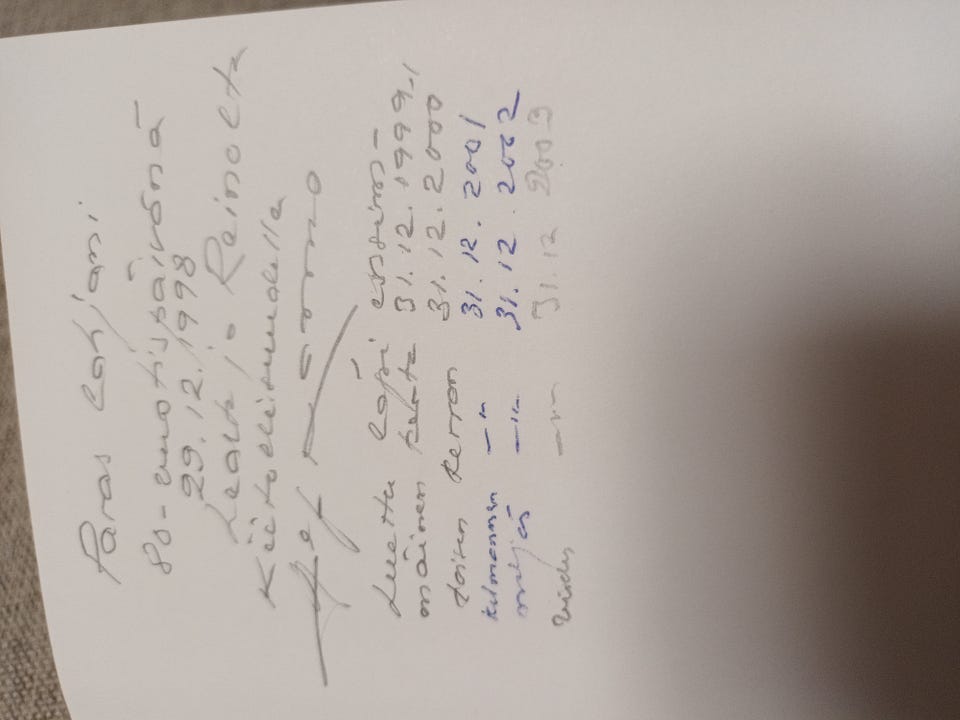 Paras Lahjani
80-vuotispäivänä
29.12.1998
Lealta ja Reinolta
Kiitollisuudella
Luettu läpi ensim-
mäinen kerta 31.12.1999
toisen kerran 31.12.2000
kolmannen —"— 31.12.2001
neljäs —"— 31.12.2002
viides —"— 31.12 2003